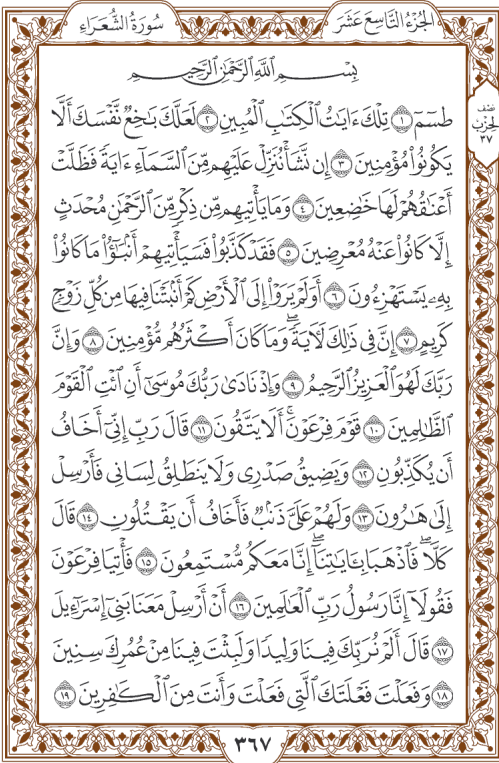 الجُزْءُ التَّاسِعَ عَشَرَ
سُورَةُ الشُّعَرَاءِ
بِسْمِ اللَّهِ الرَّحْمَٰنِ الرَّحِيمِ
نصف
الحزب
٣٧
طسٓمٓ ١ تِلْكَ ءَايَٰتُ ٱلْكِتَٰبِ ٱلْمُبِينِ ٢ لَعَلَّكَ بَٰخِعٌ نَّفْسَكَ أَلَّا
يَكُونُوا۟ مُؤْمِنِينَ ٣ إِن نَّشَأْ نُنَزِّلْ عَلَيْهِم مِّنَ ٱلسَّمَآءِ ءَايَةً فَظَلَّتْ
أَعْنَٰقُهُمْ لَهَا خَٰضِعِينَ ٤ وَمَا يَأْتِيهِم مِّن ذِكْرٍ مِّنَ ٱلرَّحْمَٰنِ مُحْدَثٍ
إِلَّا كَانُوا۟ عَنْهُ مُعْرِضِينَ ٥ فَقَدْ كَذَّبُوا۟ فَسَيَأْتِيهِمْ أَنۢبَٰٓؤُا۟ مَا كَانُوا۟
بِهِۦ يَسْتَهْزِءُونَ ٦ أَوَلَمْ يَرَوْا۟ إِلَى ٱلْأَرْضِ كَمْ أَنۢبَتْنَا فِيهَا مِن كُلِّ زَوْجٍ
كَرِيمٍ ٧ إِنَّ فِى ذَٰلِكَ لَءَايَةً ۖ وَمَا كَانَ أَكْثَرُهُم مُّؤْمِنِينَ ٨ وَإِنَّ
رَبَّكَ لَهُوَ ٱلْعَزِيزُ ٱلرَّحِيمُ ٩ وَإِذْ نَادَىٰ رَبُّكَ مُوسَىٰٓ أَنِ ٱئْتِ ٱلْقَوْمَ
ٱلظَّٰلِمِينَ ١٠ قَوْمَ فِرْعَوْنَ ۚ أَلَا يَتَّقُونَ ١١ قَالَ رَبِّ إِنِّىٓ أَخَافُ
أَن يُكَذِّبُونِ ١٢ وَيَضِيقُ صَدْرِى وَلَا يَنطَلِقُ لِسَانِى فَأَرْسِلْ
إِلَىٰ هَٰرُونَ ١٣ وَلَهُمْ عَلَىَّ ذَنۢبٌ فَأَخَافُ أَن يَقْتُلُونِ ١٤ قَالَ
كَلَّا ۖ فَٱذْهَبَا بِـَٔايَٰتِنَآ ۖ إِنَّا مَعَكُم مُّسْتَمِعُونَ ١٥ فَأْتِيَا فِرْعَوْنَ
فَقُولَآ إِنَّا رَسُولُ رَبِّ ٱلْعَٰلَمِينَ ١٦ أَنْ أَرْسِلْ مَعَنَا بَنِىٓ إِسْرَٰٓءِيلَ
١٧ قَالَ أَلَمْ نُرَبِّكَ فِينَا وَلِيدًا وَلَبِثْتَ فِينَا مِنْ عُمُرِكَ سِنِينَ
١٨ وَفَعَلْتَ فَعْلَتَكَ ٱلَّتِى فَعَلْتَ وَأَنتَ مِنَ ٱلْكَٰفِرِينَ ١٩
٣٦٧